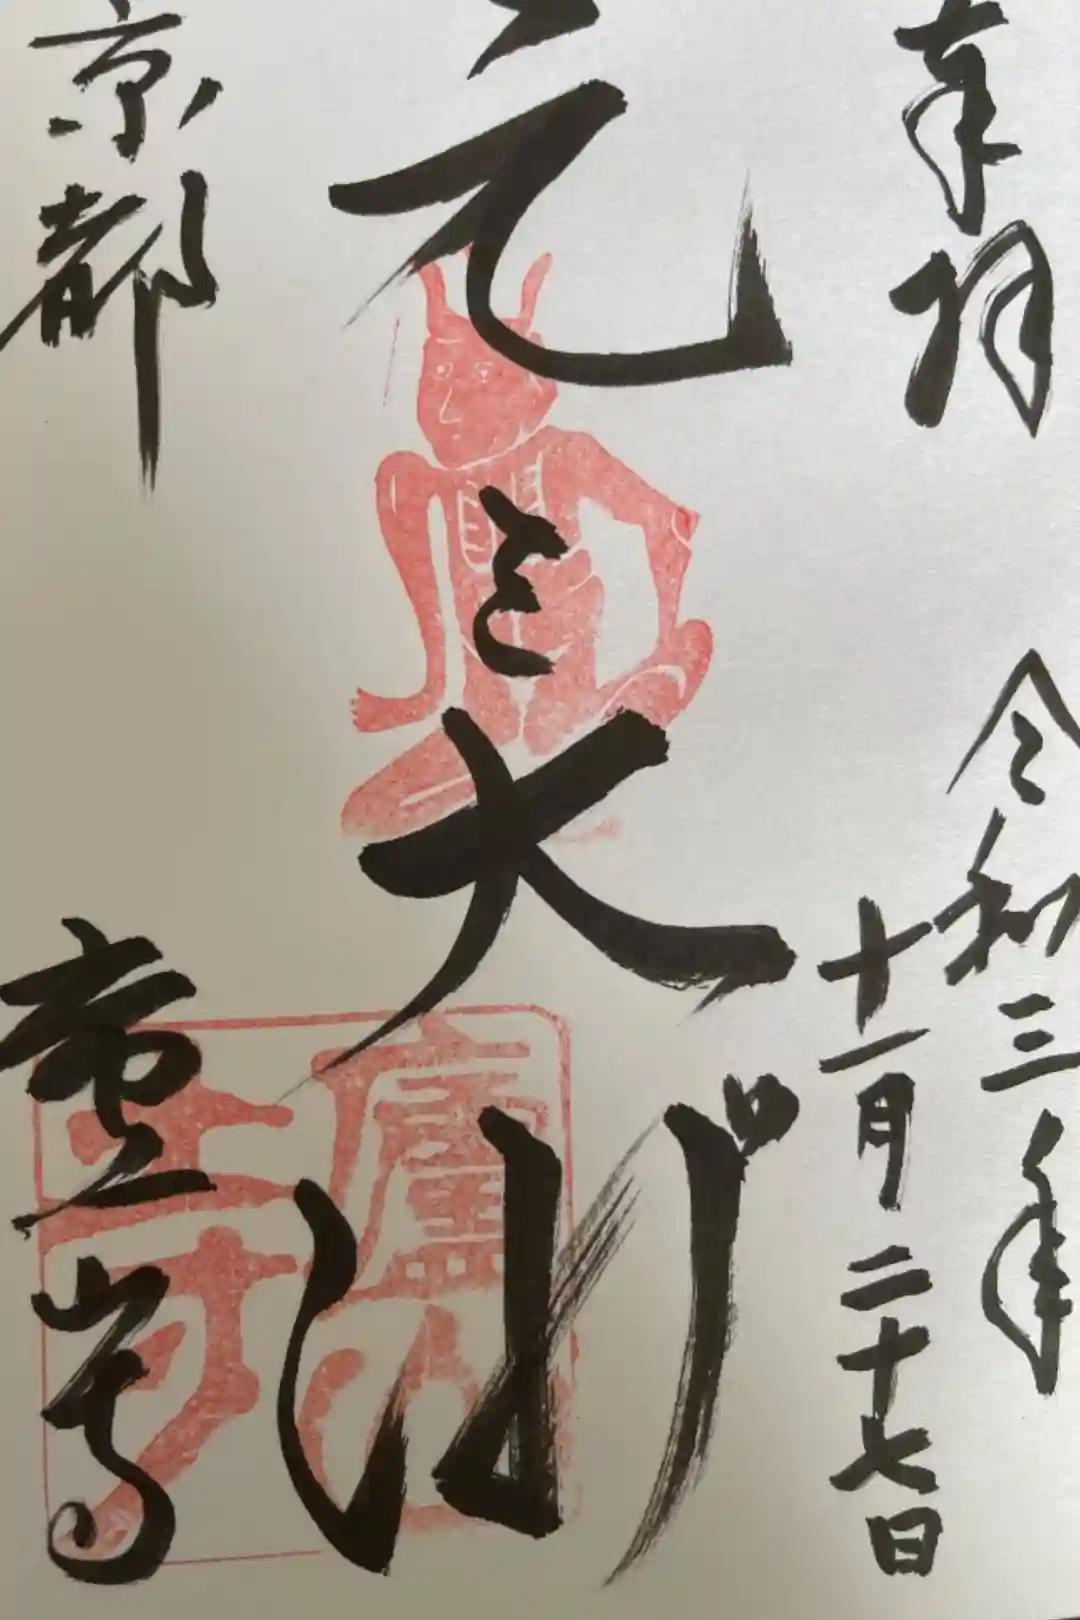 奉拝
令和三年
十一月二十七日
元三大師
京都
廬山寺
廬山寺